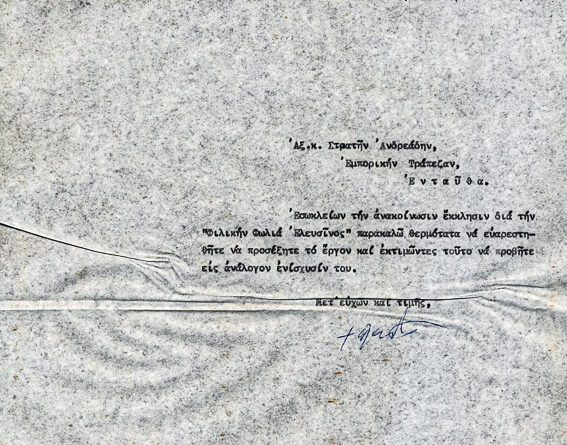 Ἀξ.κ. Στρατῆν Ἀνδρεάδην,
Ἐμπορικήν Τράπεζαν,
Ἐ ν τ α ῦ θ α.
Ἐσωκλείων τήν ἀνακοίνωσιν ἔκκλησιν διά τήν
"Φιλικήν Φωλιά Ἐλευσῖνος" παρακαλῶ θερμότατα νά εὐαρεστη-
θῆτε νά προσέξητε τό ἔργον καί ἐκτιμῶντες τοῦτο νά προβῆτε
εἰς ἀνάλογον ἐνίσχυσίν του.
Μετ'εὐχῶν καί τιμῆς,